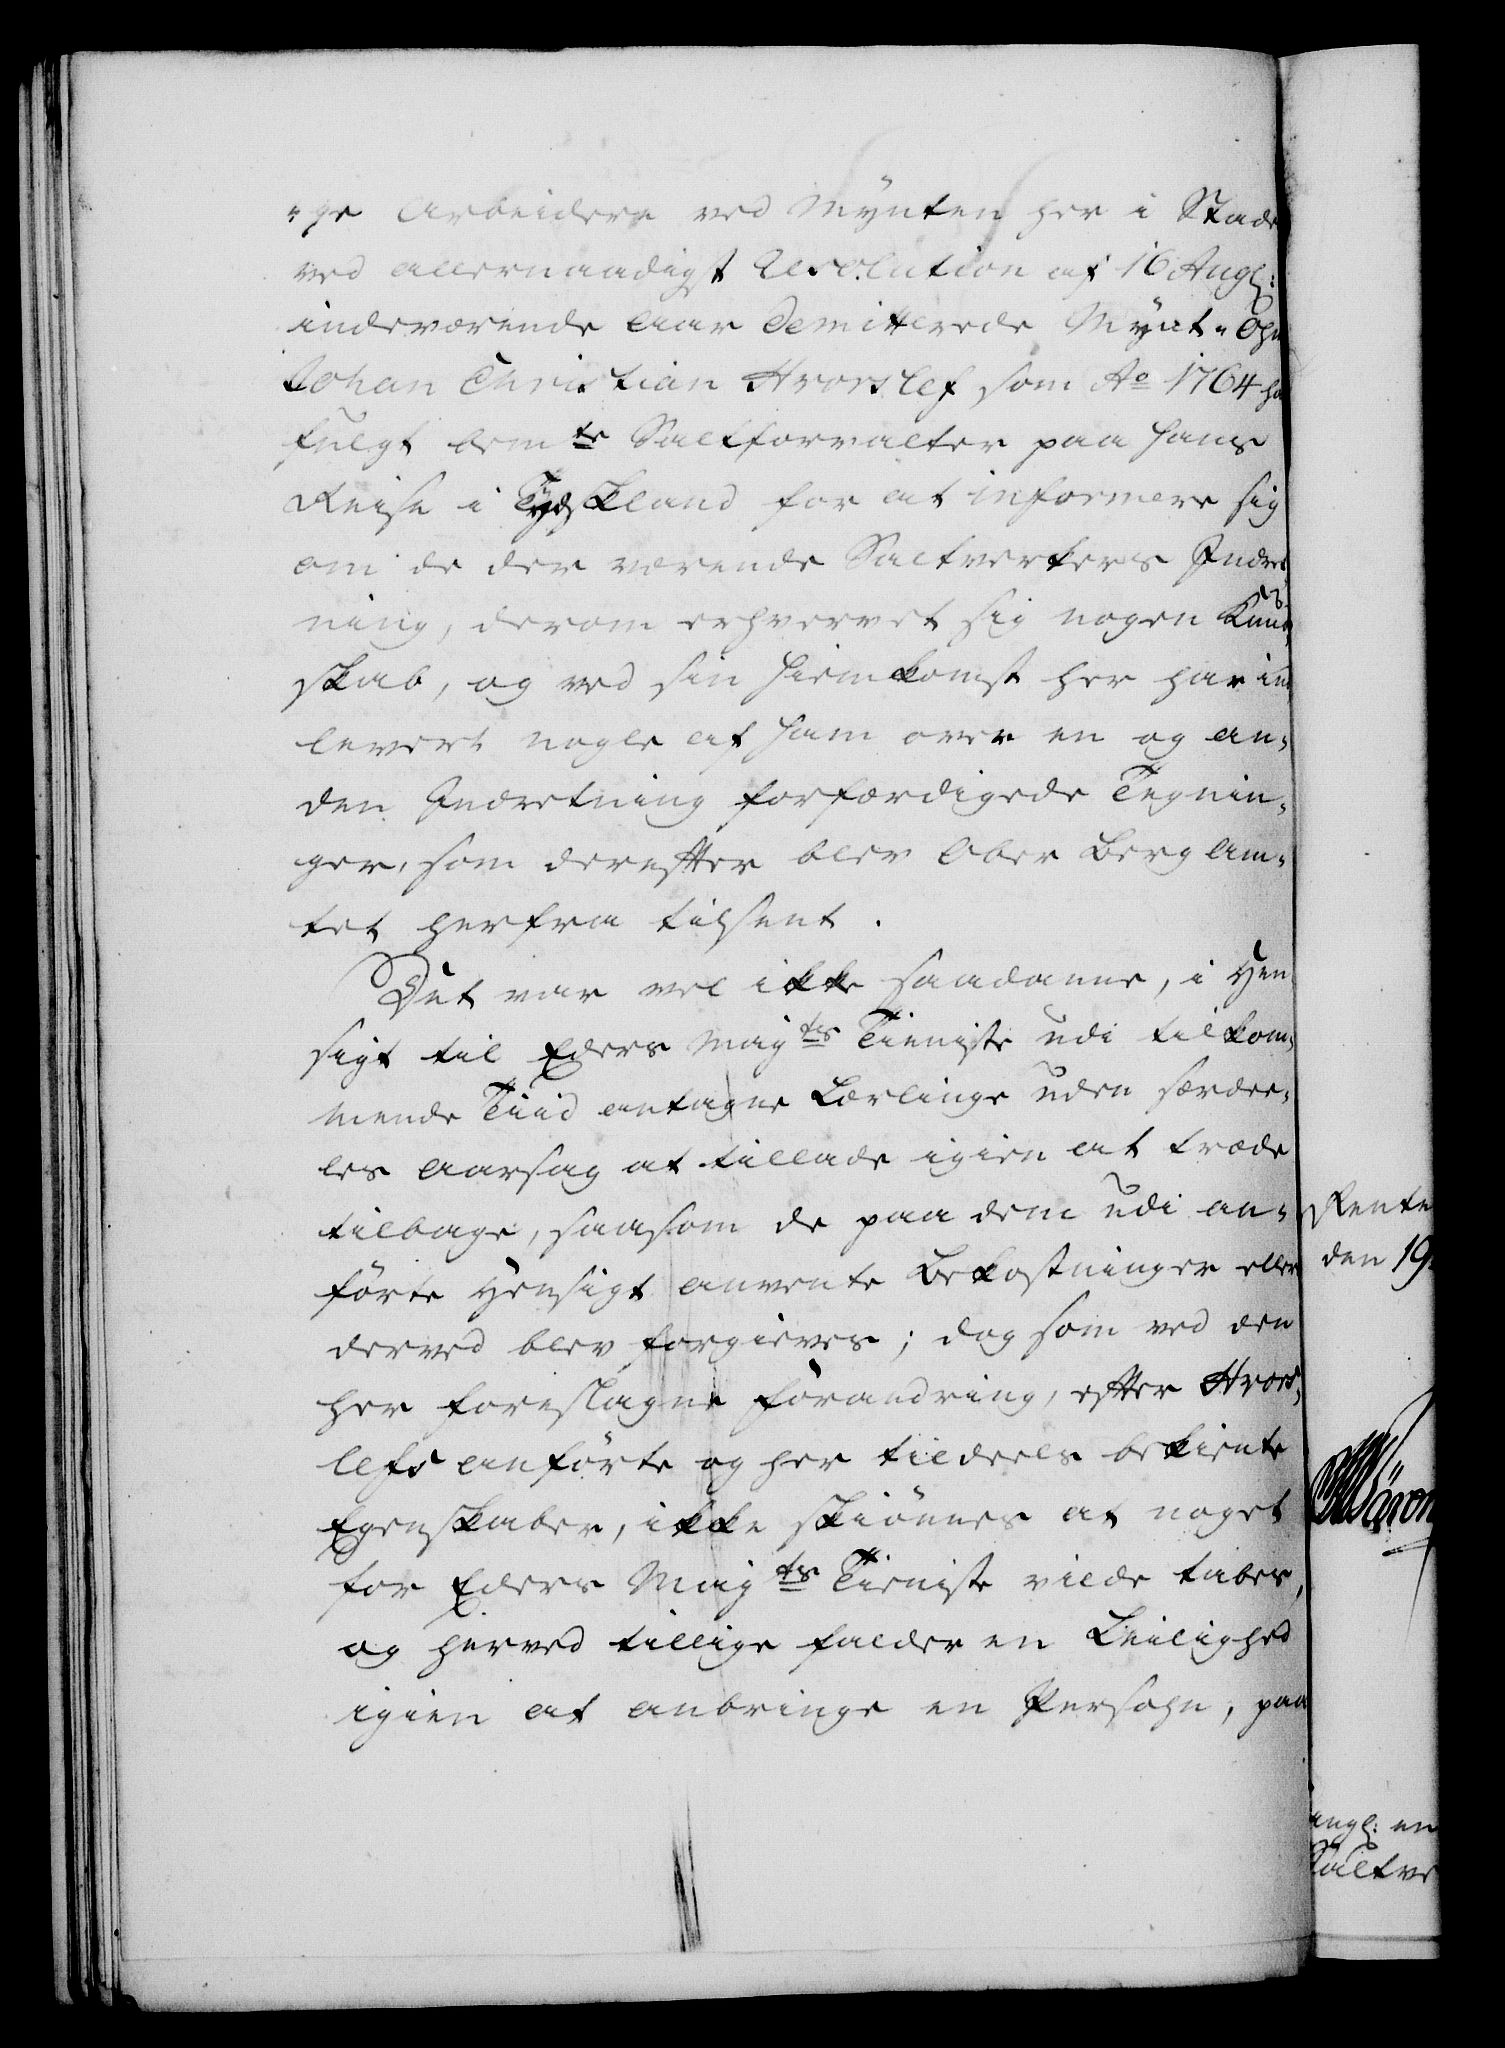 "ge Arbeidere ved Mynten her i Stade
ved allernaadigst Resolution af 16 Aug:
indeværende Aar demitterede Mynt-
Johan Christian Hvorslef som Ao 1764 ha
fulgt bemte Saltforvalter paa hans
Reise i Tydskland for at informere sig
om de der værende Saltverkers Indret
ning, derom erhvervet sig nogen Kund
skab, og ved sin Hiemkomst her har ind
levert nogle af ham over en og an-
den Indretning forfærdigede Tegnin-
ger, som derefter blev Ober Berg Am-
tet herfra tilsent.
Det var vel ikke saadanne, i Hen
sigt til Eders Mayts Tieniste udi tilkom-
mende Tiid antagne Lærlinge uden særdee-
les Aarsag at tillade igien at træde
tilbage, saasom de paa dem udi an-
førte Hensigt anvente Bekostninger ellers
derved blev forgieves; dog som ved den
her foreslagne Forandring, efter Hvors-
lefs anførte og her tildeels bekiente
Egenskaber, ikke skiønnes at noget
for Eders Mayts Tieniste vilde tabes,
og herved tillige falder en Leilighed
igien at anbringe en Persohn, paa
Rente
den 19.
angl: en
Saltve